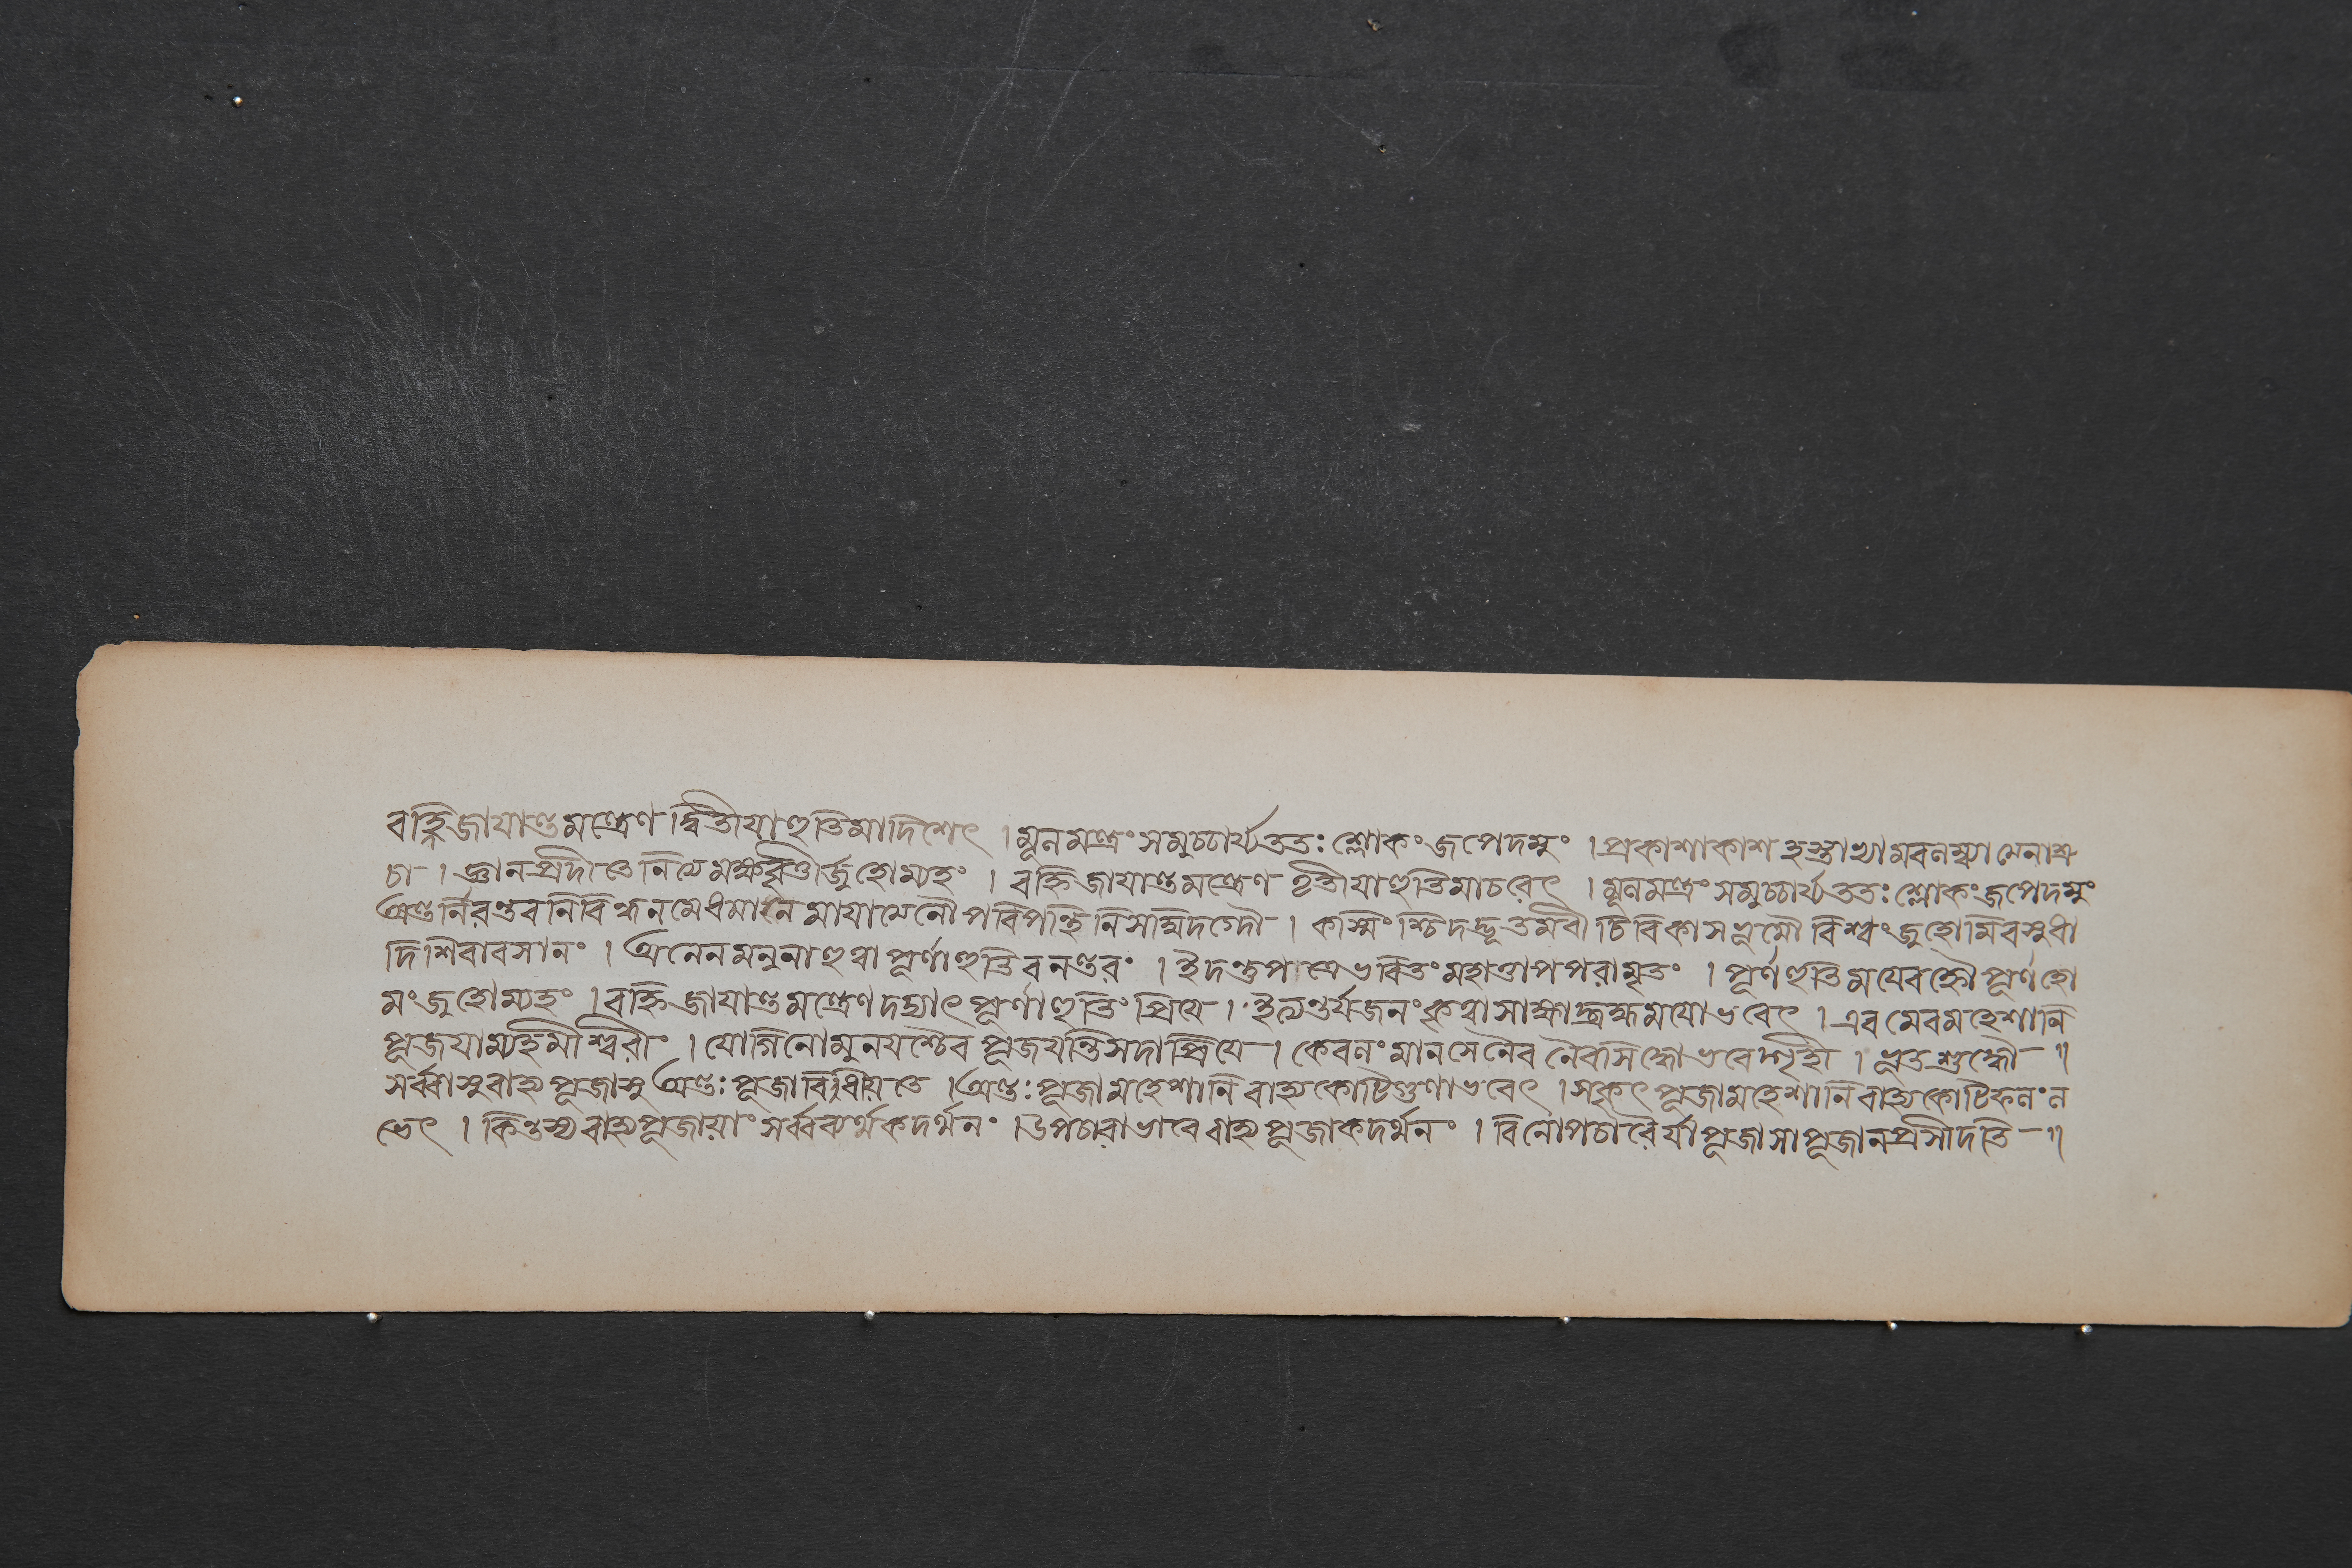 বহ্নিজায়ান্তমন্ত্রেণ দ্বিতীয়াহুতিমাদিশেৎ । মূলমন্ত্রং সমুচ্চার্য্য ততঃ শ্লোকং জপেদমুং । প্রকাশাকাশহস্তাভ্যামবলম্ব্যোমনাশ্রু
চা । জ্ঞানপ্রদীপ্তে নিত্যমক্ষবৃত্তীর্জুহোম্যহং । বহ্নিজায়ান্তমন্ত্রেণ তৃতীয়াহুতিমাচরেৎ । মূলমন্ত্রং সমুচ্চার্য্য ততঃ শ্লোকং জপেদমুং
অন্তর্নিরন্তর নিরিন্ধনমেধমানে মায়ান্ধে পরিপন্থিনি সম্বিদগ্নৌ । কস্মিংশ্চিদদ্ভূতমরীচিবিকাসভূমৌ বিশ্বং জুহোমি বসুধা
দিশিবাবসানং । অনেন মনুনা হুত্বা পূর্ণাহুতিরনন্তরং । ইদন্তুপাত্রেভরিতং মহাত্তাপপরামৃতং । পূর্ণহুতিময়েবহ্নৌ পূর্ণহো
মং জুহোম্যহং । বহ্নিজায়ান্তমন্ত্রেণ দদ্যাৎ পূর্ণাহুতিং প্রিয়ে । ইত্যন্তর্যজনং কৃত্বা সাক্ষাদ্ব্রহ্মময়ো ভবেৎ । এবমেব মহেশানি
পূজয়াম্যহমীশ্বরীং । যোগিনো মুনয়শ্চৈব পূজয়ন্তি সদা প্রিয়ে । কেবলং মানসেনৈব নৈবসিদ্ধো ভবেদ্গৃহী । ভূতশুদ্ধৌ ॥
সর্ব্বাসু বাহ্যপূজাসু অন্তঃপূজা বিধীয়তে । অন্তঃপূজা মহেশানি বাহ্যকোটিগুণা ভবেৎ । সকৃৎ পূজা মহেশানি বাহ্যকোটিফলং ল
ভেৎ । কিন্তস্য বাহ্যপূজায়াং সর্ব্বব্যর্থকদর্থনং । উপচারাভাবে বাহ্যপূজাকদর্থনং । বিনোপচারৈর্যা পূজা সা পূজা ন প্রসীদতি ॥